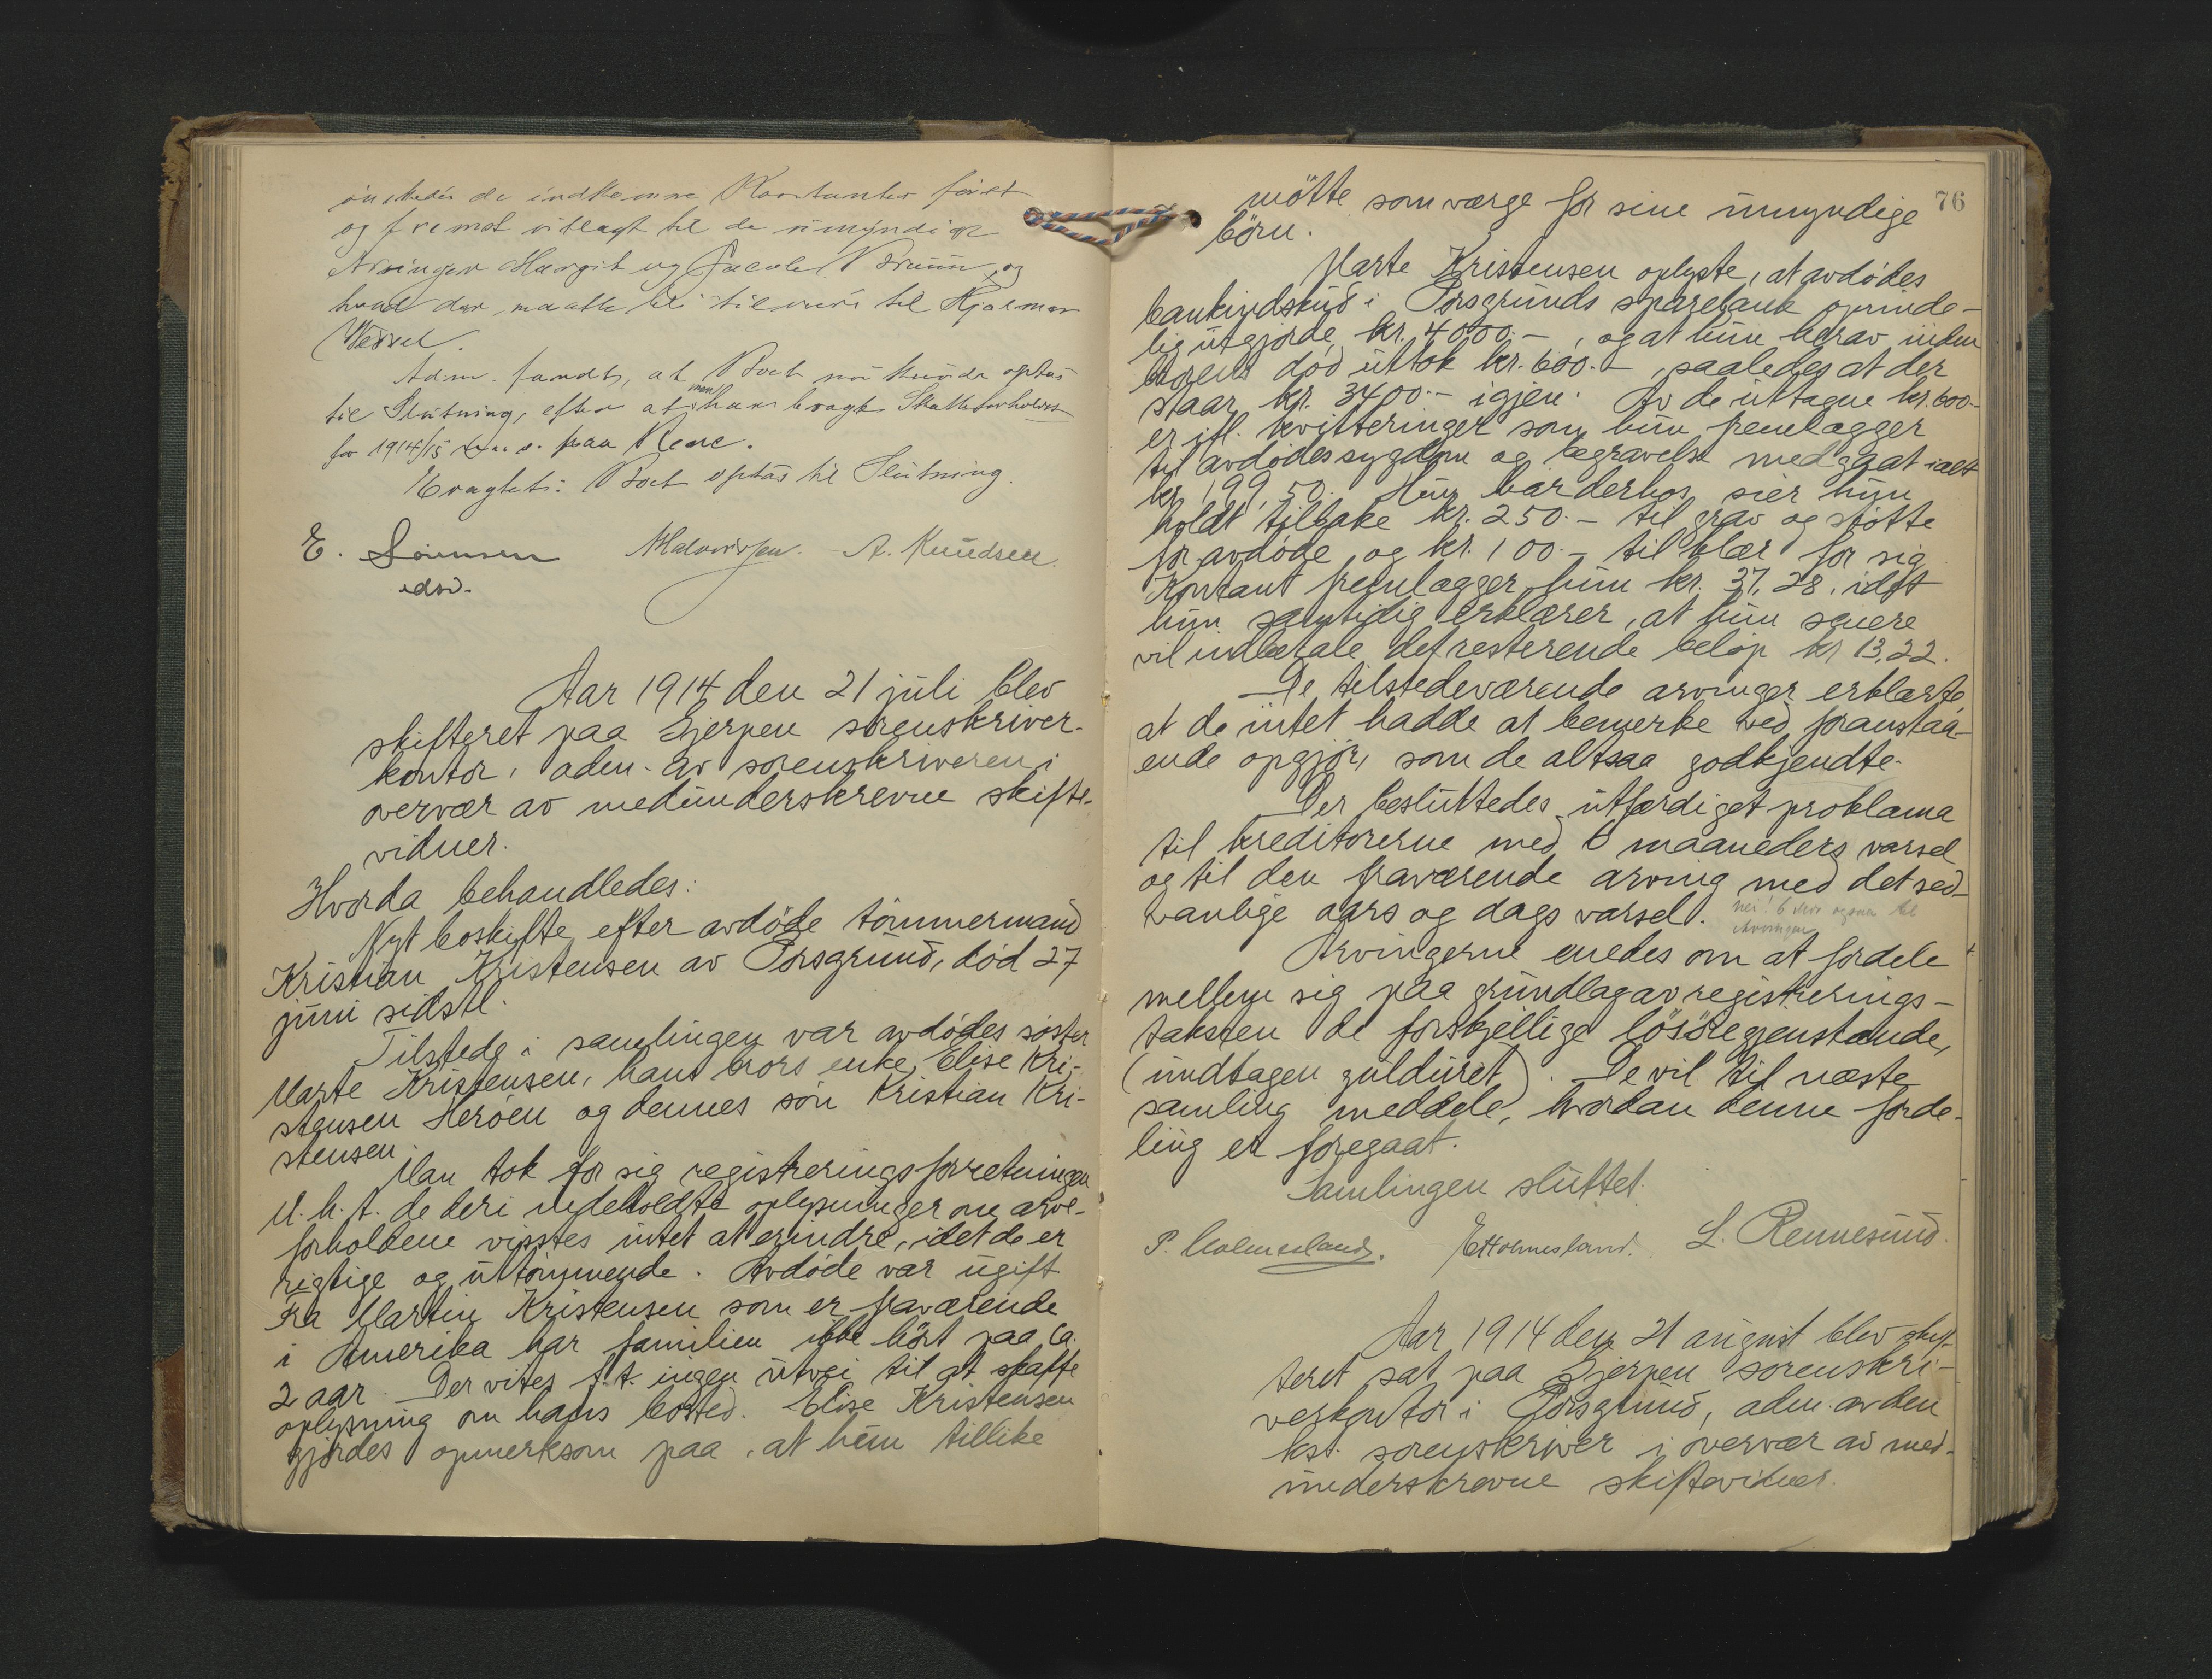 ønskedes de indkomne Kontanter først
og fremst utlagt til de umyndige
Arvinger Margit og Jacob Bruun, og
hvad der maatte bli tilovers til Hjalmar
Wessel.
Adm. fandt, at Boet nu kunde optas
til Slutning, efter at man har bragt Skatteforholdet
for 1914/15 paa Rene.
Eragtet: Boet optas til Slutning.
E. Sørensen Halvorsen. A. Knudsen.
edsv.
Aar 1914 den 21 juli blev
skifteret paa Gjerpen sorenskriver-
kontor, adm. av sorenskriveren i
overvær av medunderskrevne skifte-
vidner.
Hvorda behandledes:
Nyt boskifte efter avdøde tømmermand
Kristian Kristensen av Porsgrund, død 27
juni sidstl.
Tilstede i samlingen var avdødes søster
Marte Kristensen, hans brors enke, Elise Kri-
stensen Herøen og dennes søn Kristian Kri-
stensen.
Man tok for sig registreringsforretningen
M. h. t. de deri indeholdte oplysninger om arve-
forholdene visstes intet at erindre, idet de er
rigtige og uttømmende. Avdøde var ugift
Fra Martin Kristensen som er fraværende
i Amerika har familien ikke hørt paa ca.
2 aar. Der vites f. t. ingen utvei til at skaffe
oplysning om hans bosted. Elise Kristensen
gjordes opmerksom paa, at hun tillike
76
møtte som værge for sine umyndige
børn.
Marte Kristensen oplyste, at avdødes
bankindskud i Porsgrunds sparebank oprinde-
lig utgjorde kr. 4000.-, og at hun herav inden
brorens død uttok kr. 600.-, saaledes at der
staar kr. 3400.- igjen. Av de uttagne kr. 600.-
er ifl. kvitteringer som hun fremlægger
til avdødes sygdom og begravelse medgaat ialt
kr. 199,50. Hun har derhos, sier hun
holdt tilbake kr. 250.- til grav og støtte
for avdøde, og kr. 100.- til klær for sig
Kontant fremlægger hun kr. 37,28, idet
hun samtidig erklærer, at hun senere
vil indbetale det resterende beløp kr 13,22.
De tilstedeværende arvinger erklærte,
at de intet hadde at bemerke ved foranstaa-
ende opgjør, som de altsaa godkjendte.
Der besluttedes utfærdiget proklama
til kreditorerne med 6 maaneders varsel
og til den fraværende arving med det sed-
vanlige aars og dags varsel. nei! 6 mdr ogsaa til
Arvingen
Arvingerne enedes om at fordele
mellem sig paa grundlag av registrerings-
taksten de forskjellige løsøregjenstande,
(undtagen gulduret). De vil til næste
samling meddele, hvordan denne forde-
ling er foregaat.
Samlingen sluttet.
P. Holmesland. E Holmesland. L. Rennesund.
Aar 1914 den 21 august blev skif-
teret sat paa Gjerpen sorenskri-
verkontor i Porsgrund, adm. av den
kst. sorenskriver i overvær av med-
underskrevne skiftevidner.